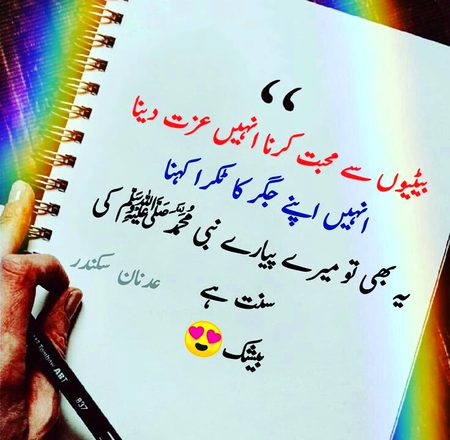 “
بیٹیوں سے محبت کرنا انہیں عزت دینا
انہیں اپنے جگر کا ٹکرا کہنا
یہ بھی تو میرے پیارے نبی محمد ﷺ کی
سنت ہے
عدنان سکندر
بیشک😍
Tombow ART 837